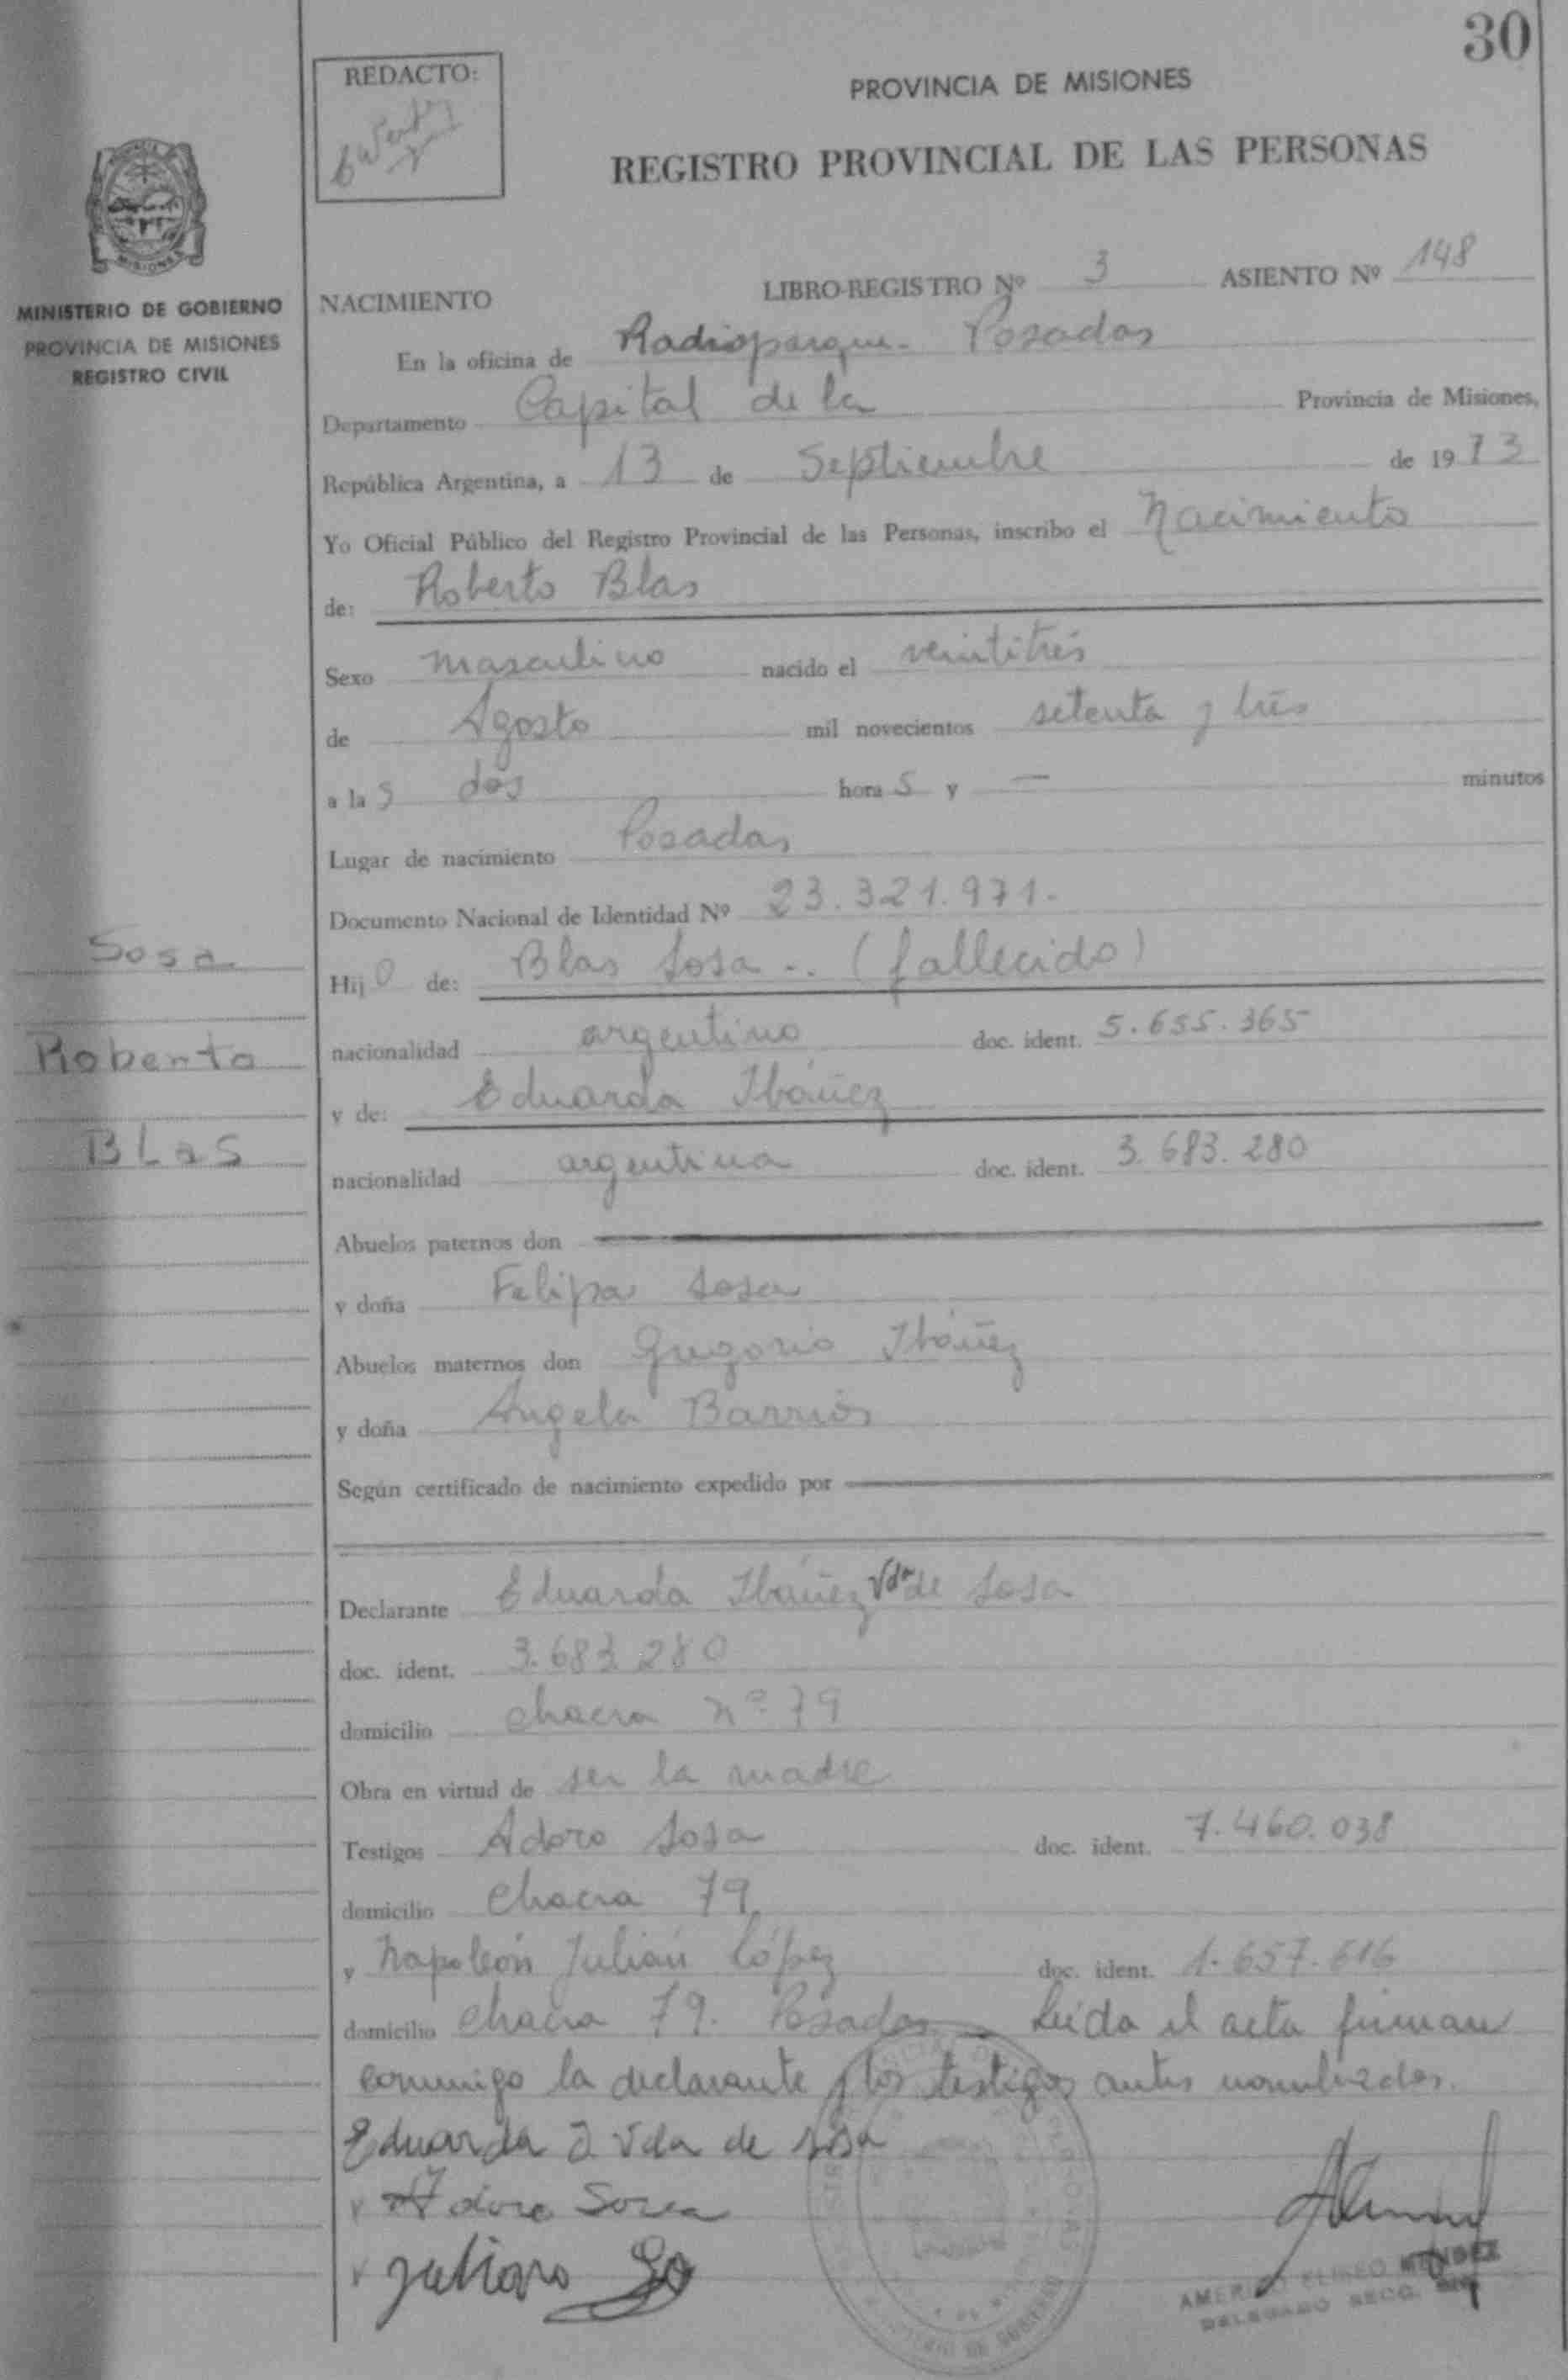 30
REDACTO:
PROVINCIA DE MISIONES
REGISTRO PROVINCIAL DE LAS PERSONAS
MISIONES
MINISTERIO DE GOBIERNO
PROVINCIA DE MISIONES
REGISTRO CIVIL
NACIMIENTO LIBRO-REGISTRO Nº 3 ASIENTO Nº 148
En la oficina de Radioparque - Posadas
Departamento Capital de la Provincia de Misiones,
República Argentina, a 13 de Septiembre de 1973
Yo Oficial Público del Registro Provincial de las Personas, inscribo el Nacimiento
de: Roberto Blas
Sexo masculino nacido el veintitrés
de Agosto mil novecientos setenta y tres
a las dos horas y — minutos
Lugar de nacimiento Posadas
Documento Nacional de Identidad Nº 23.321.971.-
Sosa
Hijo de: Blas Sosa .. (fallecido)
Roberto
nacionalidad argentino doc. ident. 5.655.365
y de: Eduarda Ibáñez
BLas
nacionalidad argentina doc. ident. 3.683.280
Abuelos paternos don
y doña Felipa Sosa
Abuelos maternos don Gregorio Ibáñez
y doña Angela Barrios
Según certificado de nacimiento expedido por
Declarante Eduarda Ibáñez Vda de Sosa
doc. ident. 3.683.280
domicilio chacra nº 79
Obra en virtud de ser la madre
Testigos Adoro Sosa doc. ident. 7.460.038
domicilio Chacra 79
y Napoleón Julián López doc. ident. 1.657.616
domicilio Chacra 79. Posadas - Leída el acta firman
conmigo la declarante y los testigos antes nombrados.
Eduarda Vda de Sosa
Adoro Sosa
MENDEZ
DELEGADO SECC.